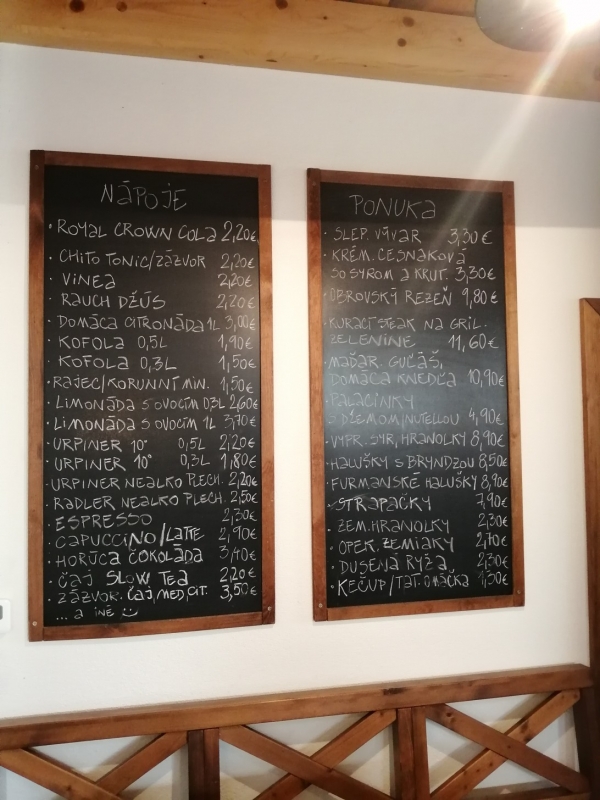 NÁPOJE
· ROYAL CROWN COLA 2,20€
· CHITO TONIC/ZÁZVOR 2,20€
· VINEA 2,20€
· RAUCH DŽÚS 2,20€
· DOMÁCA CITRONÁDA 1L 3,00€
· KOFOLA 0,5L 1,90€
· KOFOLA 0,3L 1,50€
· RAJEC/KORUNNÍ MIN. 1,50€
· LIMONÁDA S OVOCÍM 0,3L 2,60€
· LIMONÁDA S OVOCÍM 1L 3,70€
· URPINER 10° 0,5L 2,20€
· URPINER 10° 0,3L 1,80€
· URPINER NEALKO PLECH. 2,20€
· RADLER NEALKO PLECH. 2,50€
· ESPRESSO 2,30€
· CAPUCCINO/LATTE 2,90€
· HORÚCA ČOKOLÁDA 3,40€
· ČAJ SLOW TEA 2,20€
· ZÁZVOR. ČAJ,MED,CIT. 3,50€
... a iné
PONUKA
· SLEP. VÝVAR 3,30€
· KRÉM. CESNAKOVÁ
SO SYROM a KRUT. 3,30€
· OBROVSKÝ REZEŇ 9,80€
· KURACÍ STEAK NA GRIL.
ZELENINE 11,60€
· MAĎAR. GUĽÁŠ,
DOMÁCA KNEDĽA 10,90€
· PALACINKY
S DŽEMOM/NUTELLOU 4,90€
· VYPR. SYR, HRANOLKY 8,90€
· HALUŠKY S BRYNDZOU 8,50€
· FURMANSKÉ HALUŠKY 8,90€
· STRAPAČKY 7,90€
· ZEM. HRANOLKY 2,30€
· OPEK. ZEMIAKY 2,70€
· DUSENÁ RYŽA 2,30€
· KEČUP/TAT. OMÁČKA 1,50€